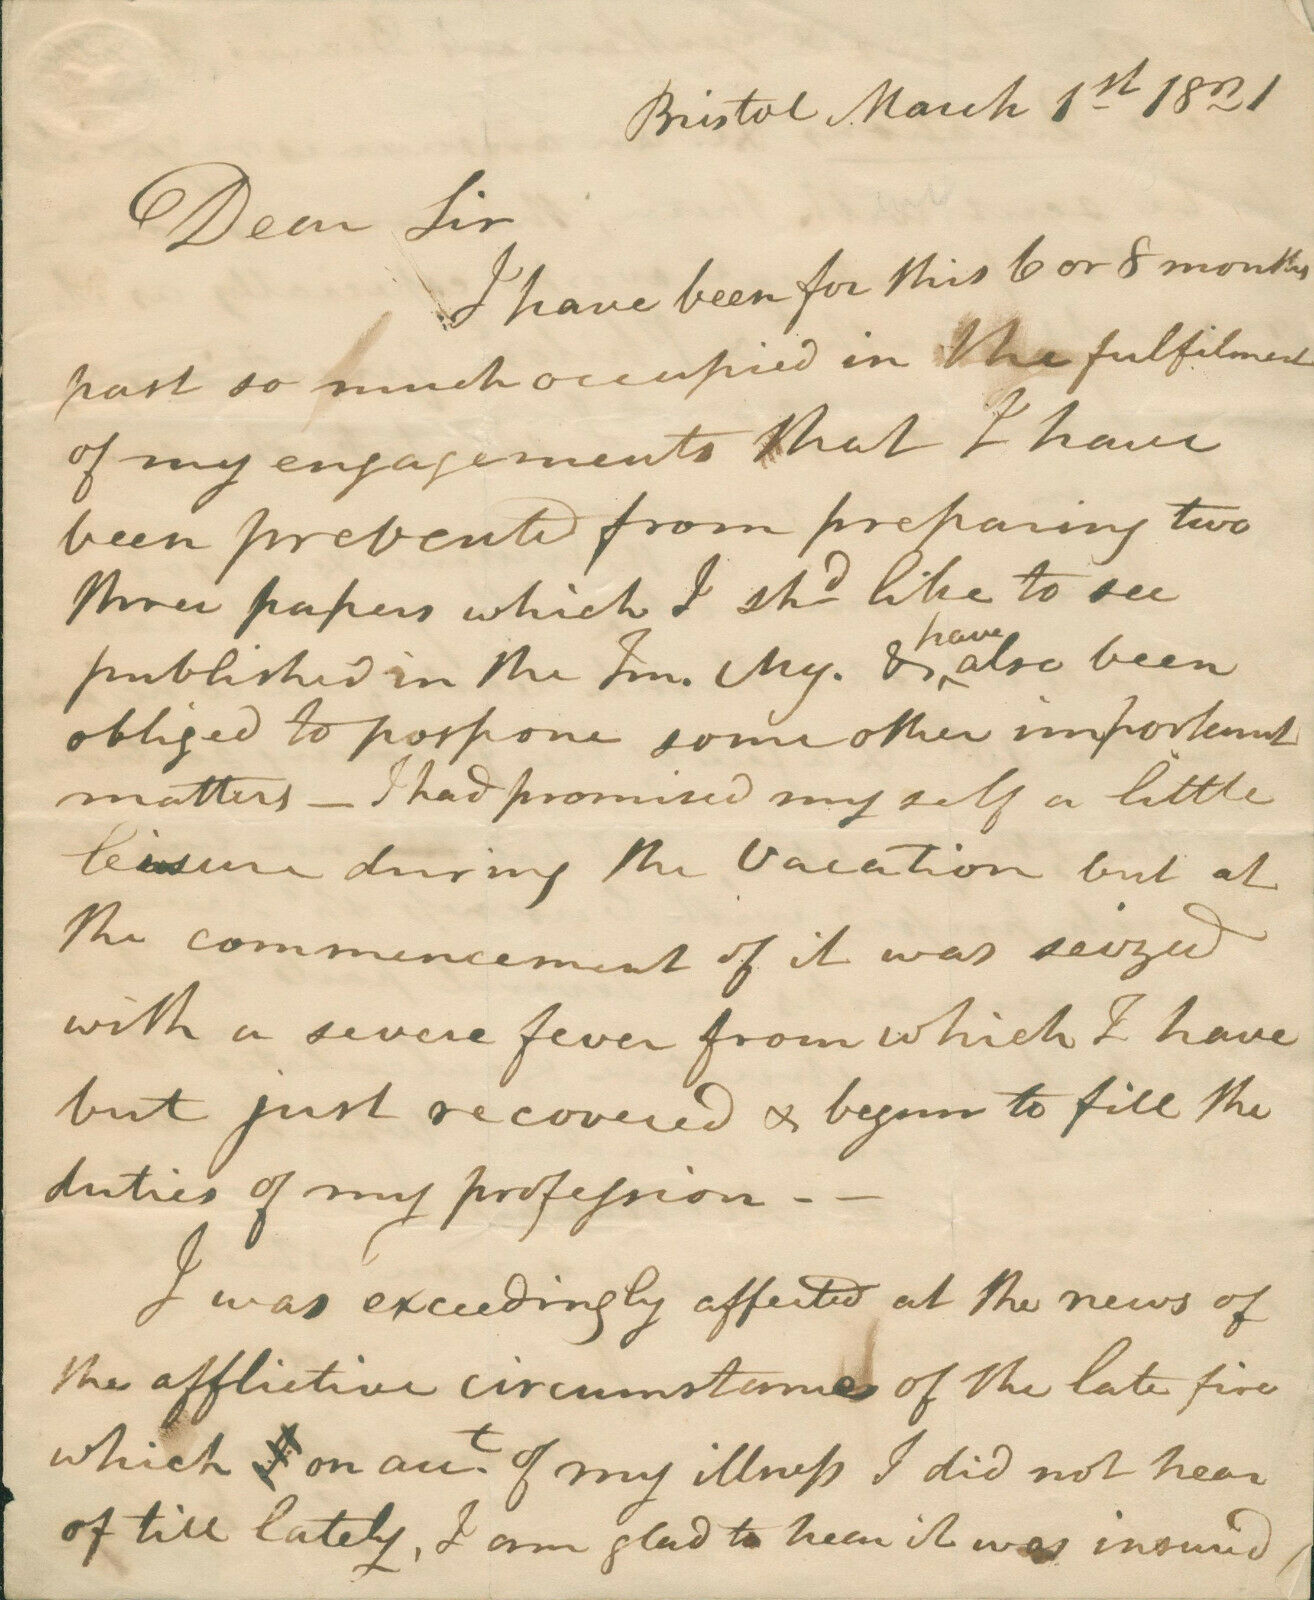 Bristol March 1st 1821
Dear Sir
I have been for this 6 or 8 months
past so much occupied in the fulfilment
of my engagements that I have
been prevented from preparing two
three papers which I shd like to see
published in the Im. Mg. & have also been
obliged to pospone some other important
matters — I had promised my self a little
leisure during the vacation but at
the commencement of it was seized
with a severe fever from which I have
but just recovered & begun to fill the
duties of my profession - —
I was exceedingly affected at the news of
the afflictive circumstances of the late fire
which on acct. of my illness I did not hear
of till lately, I am glad to hear it was insured